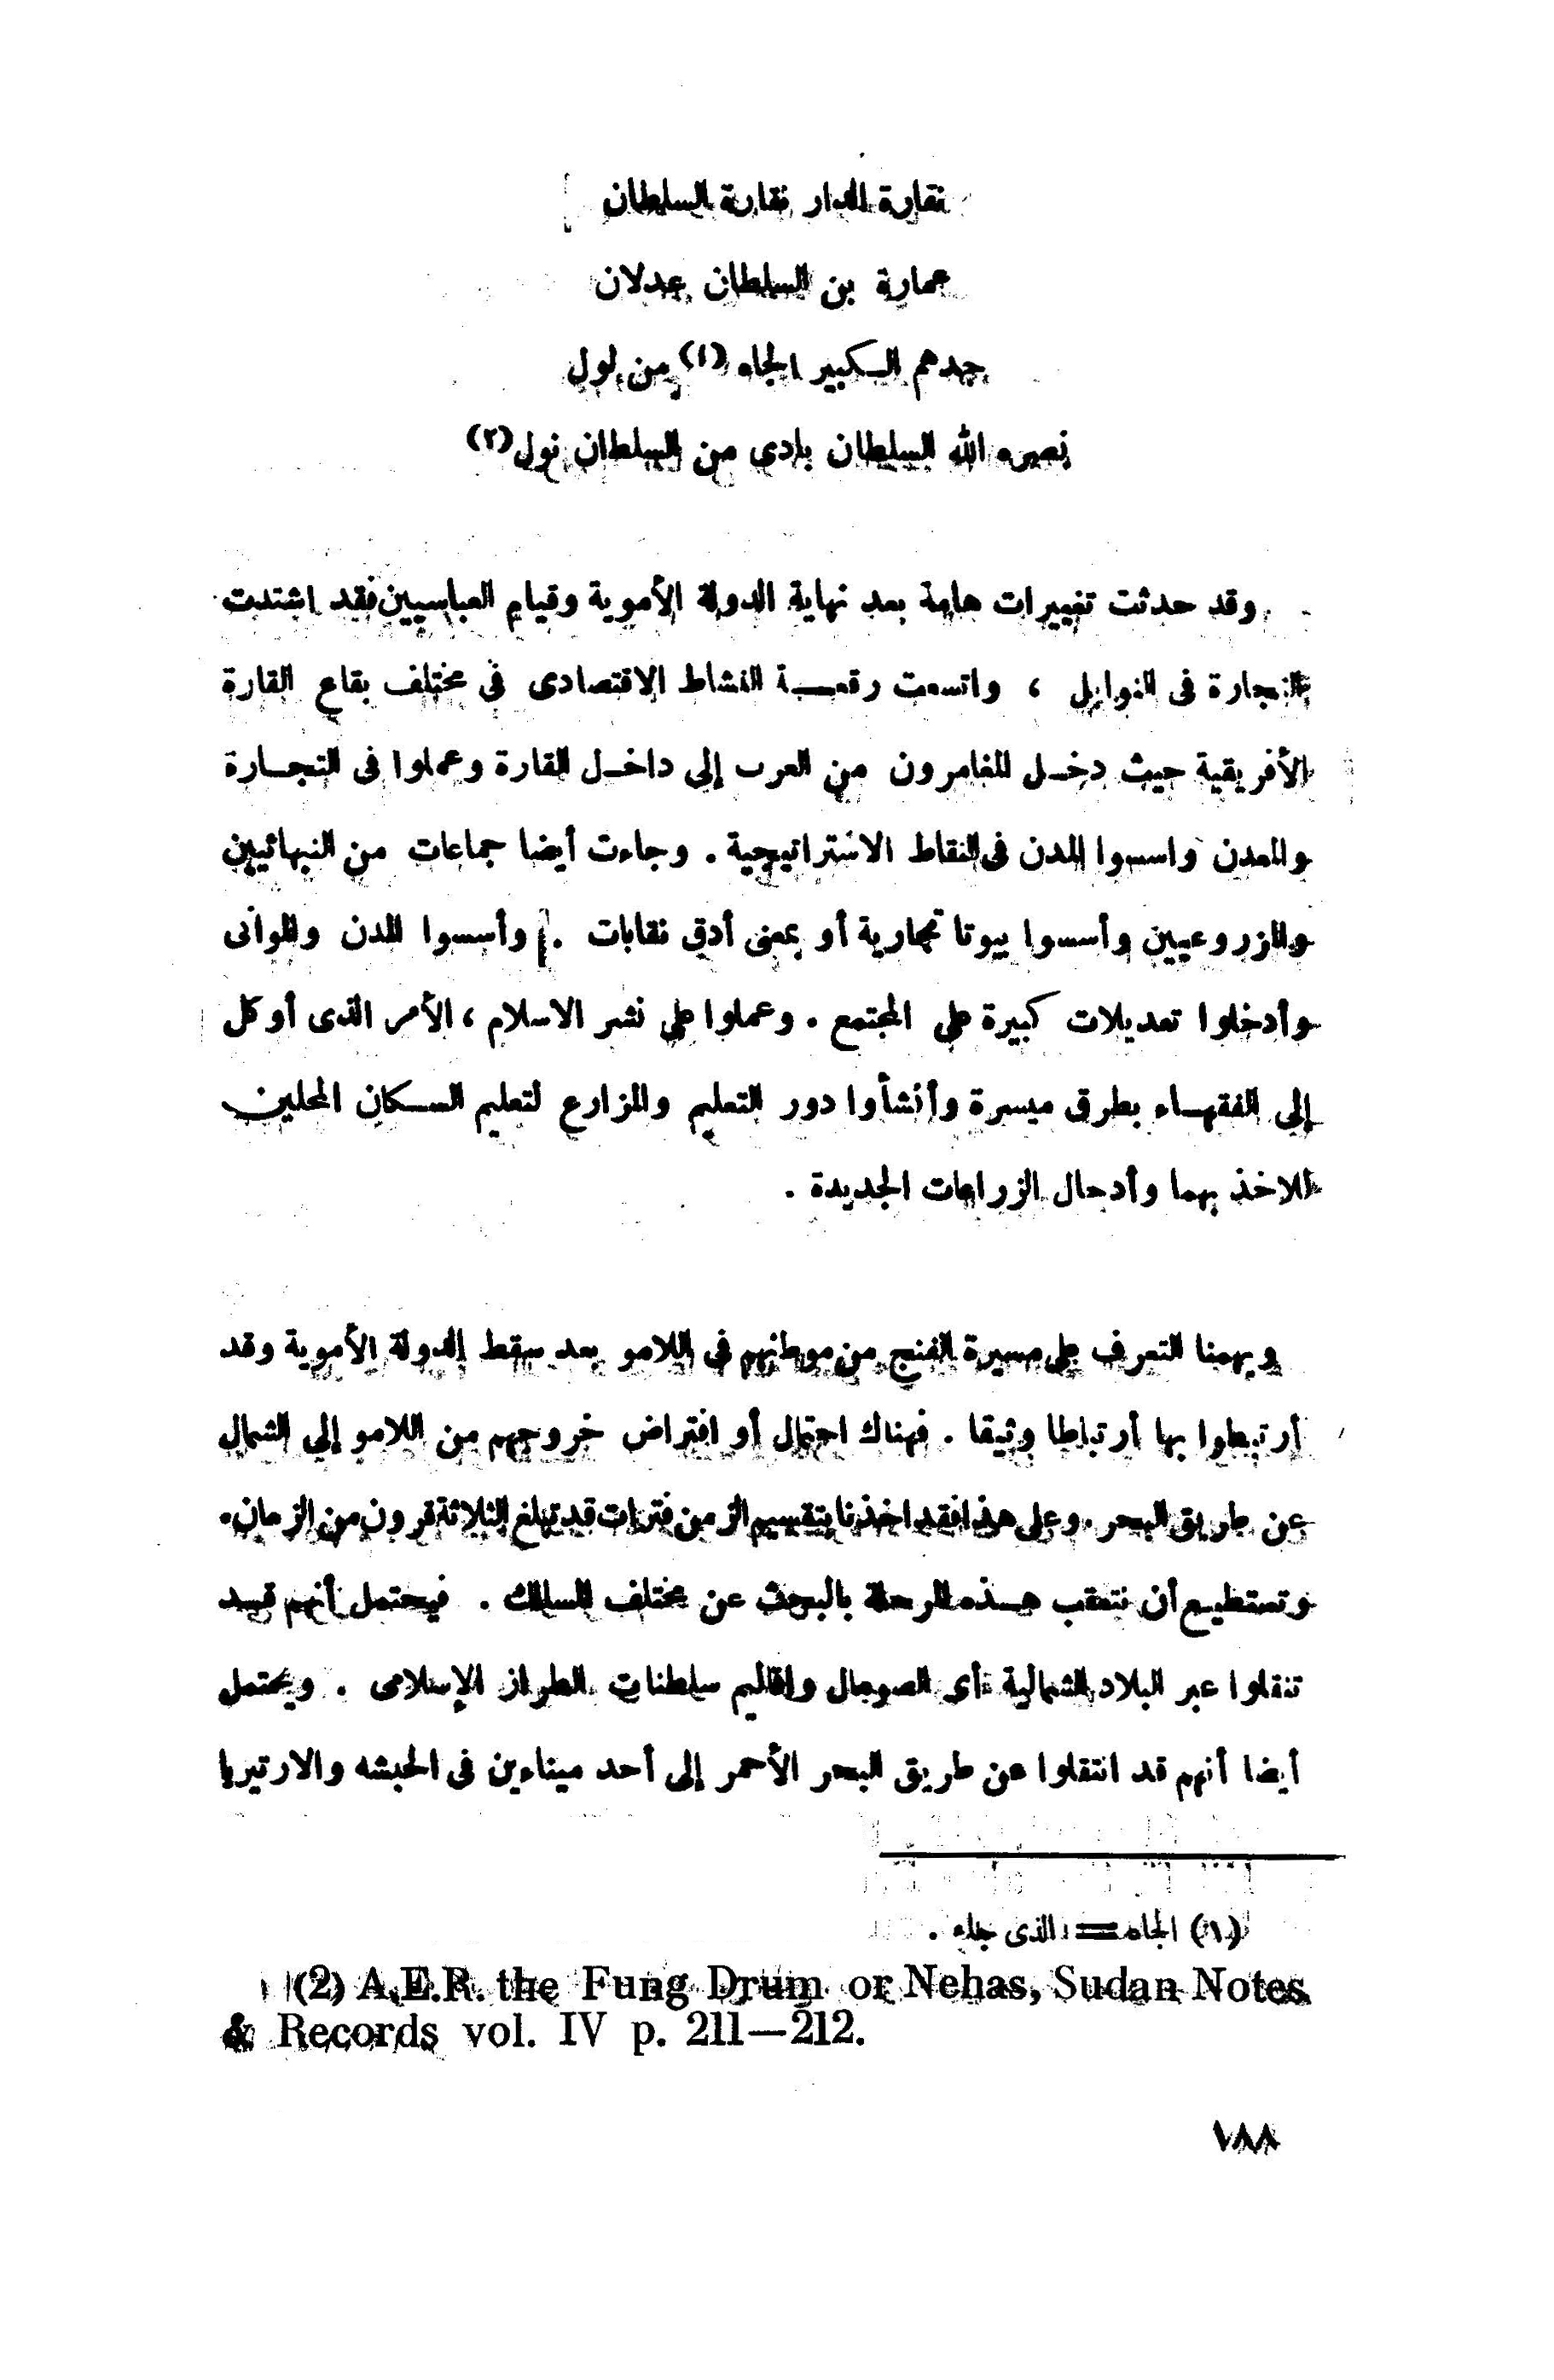 نقارة الدار نقارة السلطان
عمارة بن السلطان عدلان
جدهم الكبير الجاه (١) من لول
نصره الله السلطان بادى من السلطان نول (٢)
وقد حدثت تغييرات هامة بعد نهاية الدولة الأموية وقيام العباسيين فقد اشتدت
التجارة فى التوابل ، واتسعت رقعة النشاط الاقتصادى فى مختلف بقاع القارة
الأفريقية حيث دخل المغامرون من العرب إلى داخل القارة وعملوا فى التجارة
والمعدن واسسوا المدن فى النقاط الاستراتيجية . وجاءت أيضا جماعات من النبهانيين
والمزروعيين وأسسوا بيوتا تجارية أو بمعنى أدق نقابات . وأسسوا المدن والموانى
وأدخلوا تعديلات كبيرة على المجتمع . وعملوا على نشر الاسلام ، الأمر الذى أوكل
إلى الفقهاء بطرق ميسرة وأنشأوا دور التعليم والمزارع لتعليم السكان المحلين
للاخذ بهما وأدحال الزراعات الجديدة .
ويهمنا التعرف على مسيرة الفنج من موطنهم فى اللامو بعد سقط الدولة الأموية وقد
أرتبطوا بها أرتباطا وثيقا . فهناك احتمال أو افتراض خروجهم من اللامو إلى الشمال
عن طريق البحر . وعلى هذا فقد اخذنا بتقسيم الزمن فترات قد تبلغ الثلاثة قرون من الزمان .
وتستطيع أن نتعقب هذه المرحلة بالبحث عن مختلف المسالك . فيحتمل أنهم قد
تنقلوا عبر البلاد الشمالية أى الصوجال واقاليم سلطنات الطراز الإسلامى . ويحتمل
أيضا أنهم قد انتقلوا عن طريق البحر الأحمر إلى أحد ميناءين فى الحبشه والارتيريا
(١) الجاه = الذى جاء .
(2) A.E.R. the Fung Drum or Nehas, Sudan Notes
& Records vol. IV p. 211—212.
١٨٨